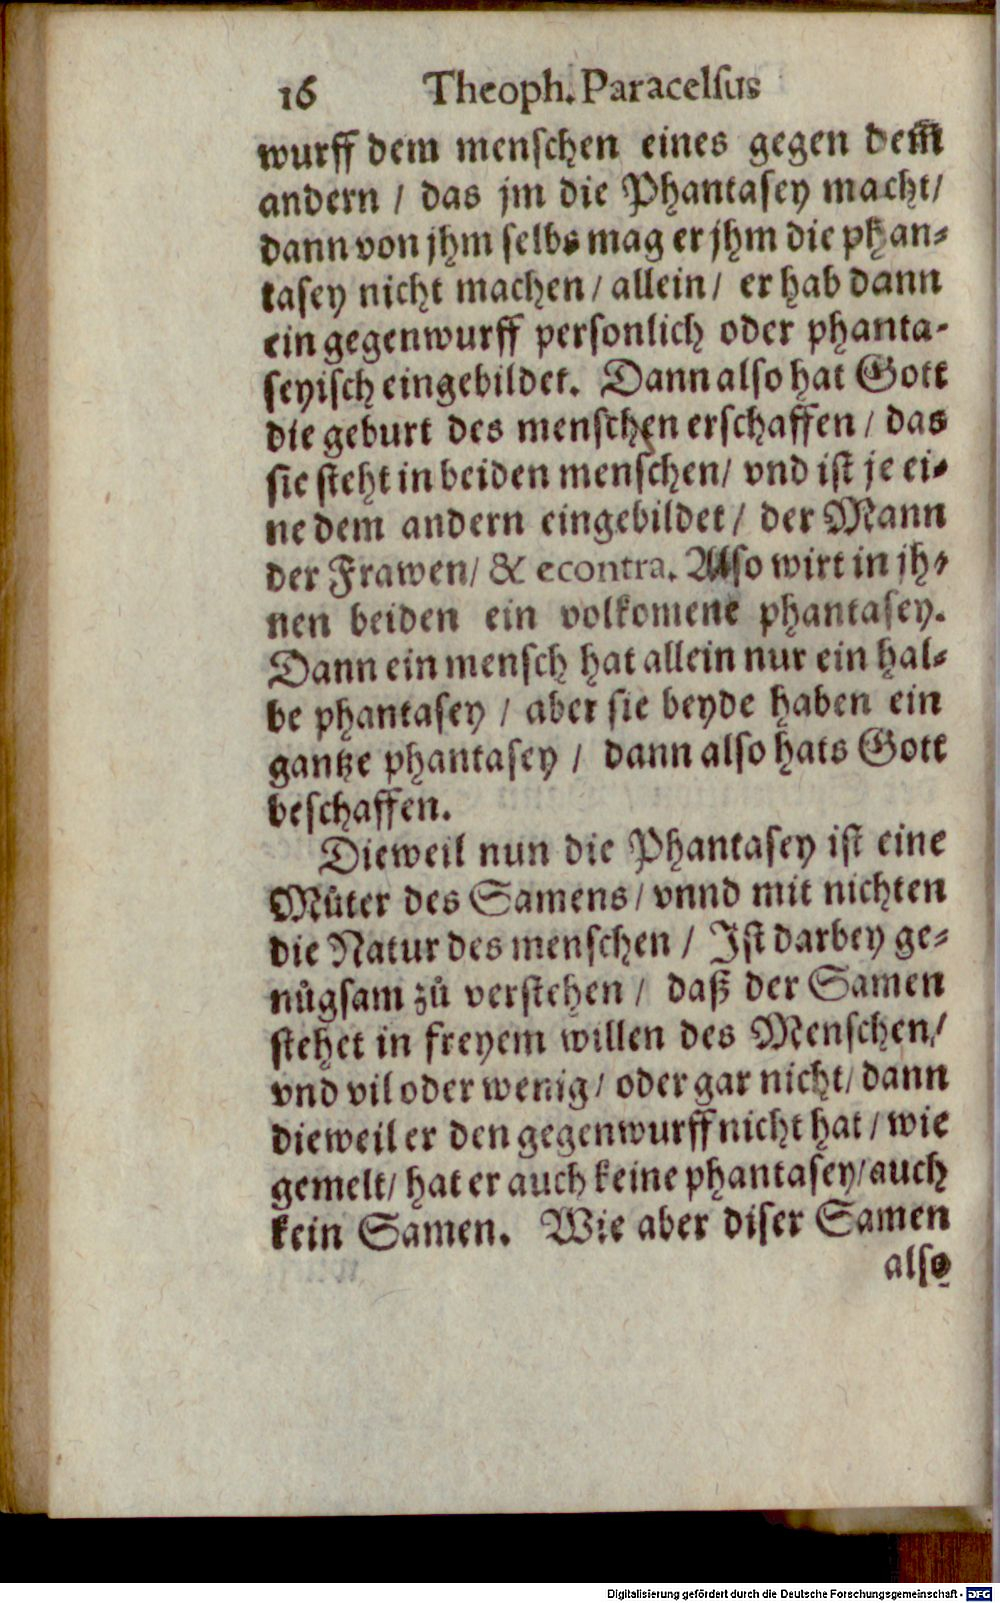 16 Theoph. Paracelsus
wurff dem menschen eines gegen dem̃
andern / das jm die Phantasey macht/
dann von jhm selbs mag er jhm die phan⸗
tasey nicht machen / allein / er hab dann
ein gegenwurff personlich oder phanta⸗
seyisch eingebildet. Dann also hat Gott
die geburt des menschen erschaffen / das
sie steht in beiden menschen/ vnd ist je ei⸗
ne dem andern eingebildet / der Mann
der Frawen/ & econtra. Also wirt in jh⸗
nen beiden ein volkomene phantasey.
Dann ein mensch hat allein nur ein hal⸗
be phantasey / aber sie beyde haben ein
gantze phantasey / dann also hats Gott
beschaffen.
Dieweil nun die Phantasey ist eine
Můter des Samens / vnnd mit nichten
die Natur des menschen / Ist darbey ge⸗
nůgsam zů verstehen / daß der Samen
stehet in freyem willen des Menschen/
vnd vil oder wenig / oder gar nicht / dann
dieweil er den gegenwurff nicht hat / wie
gemelt/ hat er auch keine phantasey/ auch
kein Samen. Wie aber diser Samen
also
Digitalisierung gefördert durch die Deutsche Forschungsgemeinschaft - DFG